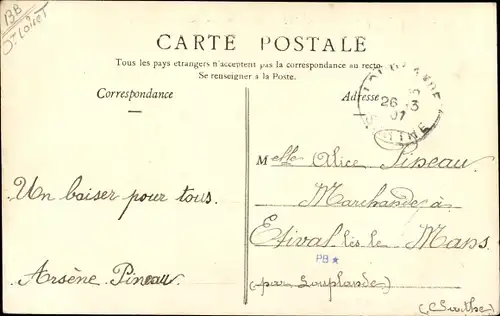 BB
Dt Loiret
CARTE POSTALE
Tous les pays étrangers n'acceptent pas la correspondance au recto.
Se renseigner à la Poste.
Correspondance
Adresse
26 -3
07
SARTHE
Melle Alice Pineau
Marchande à
Etival lès le Mans
(par Louplande)
(Sarthe)
Un baiser pour tous.
Arsène Pineau
PB★